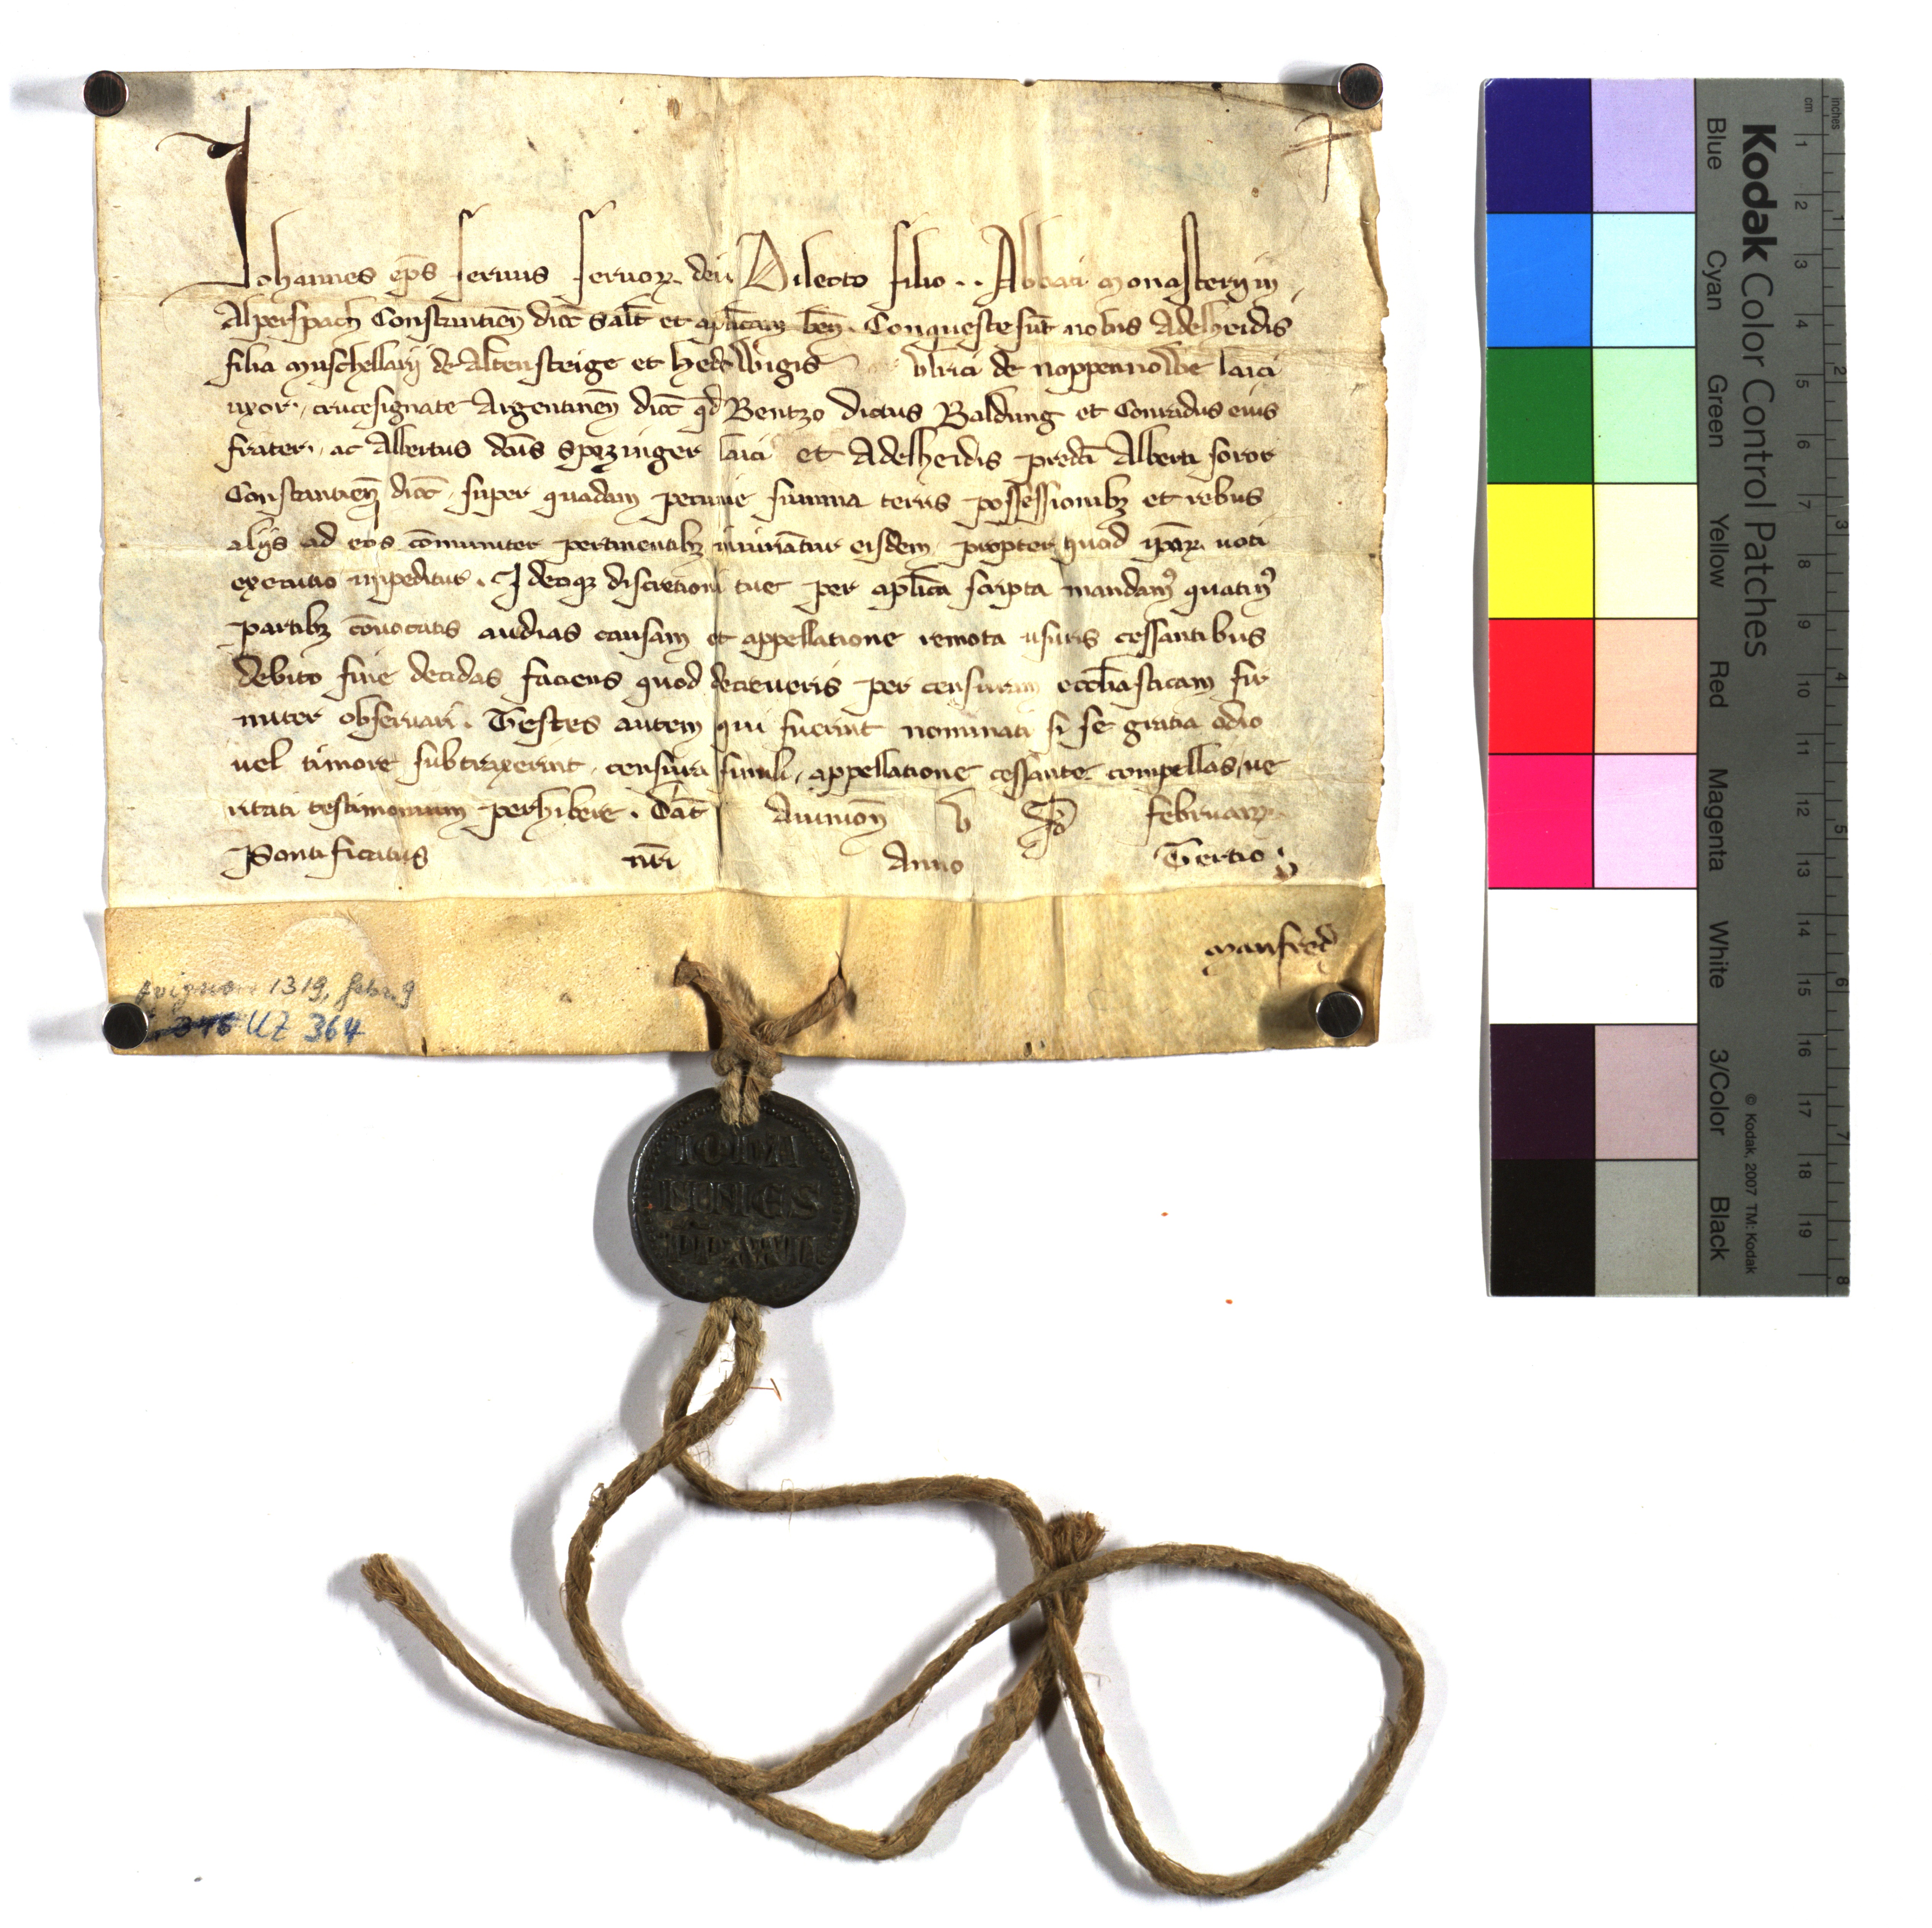 Johannes ep̄s seruus seruoꝝ dei Dilecto filio .. Abbati Monasterij in
Alperspach Constantieñ dioc̄ Saƚt et apƚicam beñ. Conqueste sūt nobis Adelheidis
filia Muschellarij de Altensteige et Hedewigis Vlrici de laici
uxor, crucesignate Argentineñ dioc̄ qđ Bentzo dictus Baldung et Conradus eius
frater, ac Albertus dc̄us Spezinger laici et Adelheidis predc̄i Alberti soror
Constantieñ dioc̄, super quadam pecunie summa terris possessionibꝫ et rebus
alijs ad eos cōmuniter pertinentibꝫ iniuriātur eisdem, propter quod ip̄aꝝ uoti
executio impeditur. Ideoqꝫ discretioni tue per apƚica scripta mandamꝰ quatinꝰ
partibꝫ cōuocatis audias causam et appellatione remota usuris cessantibus
debito fine decidas faciens quod decreueris per censuram eccƚiasticam fir
miter obseruari. Testes autem qui fuerint nominati si se gratia odio
uel timore subtraxerint, censura simili, appellatione cessante compellas, ue
ritati testimonium perhibere. Dat̄ Auinioñ V Id Februarꝝ
Pontificatus nr̄i Anno Tertio
Manfred
Avignon 1319, Febr. 9
UZ 364
IOHA
NNES
PP XXII
Kodak Color Control Patches
Blue Cyan Green Yellow Red Magenta White 3/Color Black
© Kodak, 2007 TM: Kodak
inches 1 2 3 4 5 6 7 8
cm 1 2 3 4 5 6 7 8 9 10 11 12 13 14 15 16 17 18 19